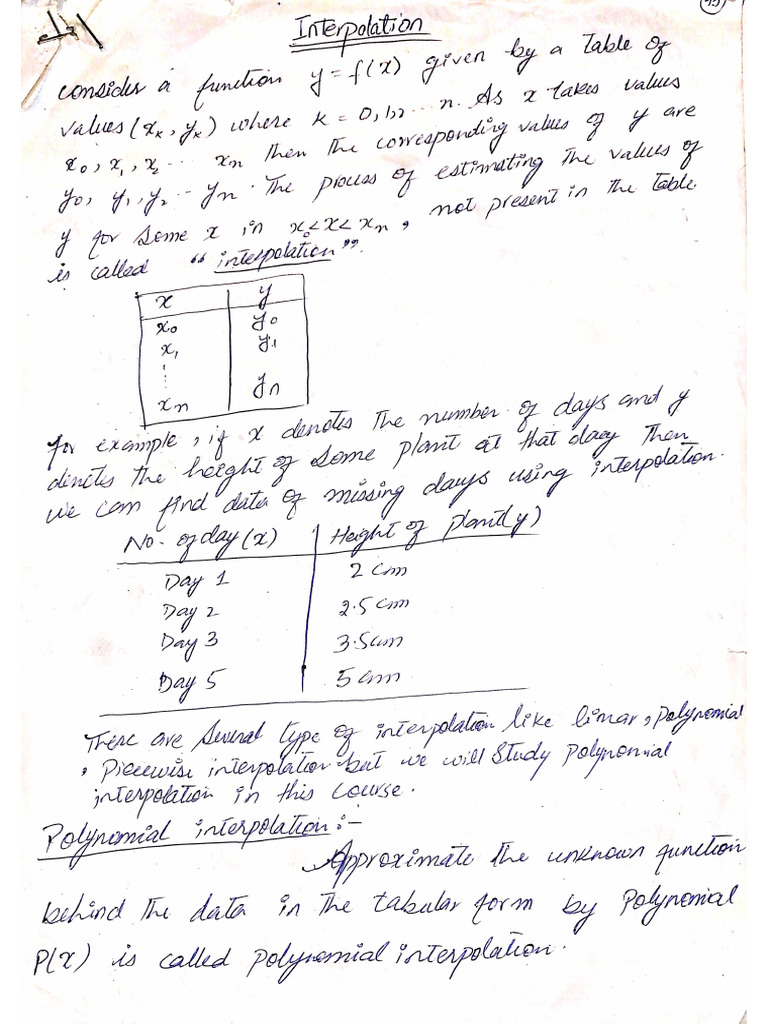 Interpolation
consider a function y = f(x) given by a Table of
values (xₖ, yₖ) where k = 0,1,2 ... n. As x takes values
x₀, x₁, x₂ ... xₙ then the corresponding values of y are
y₀, y₁, y₂ ... yₙ. The process of estimating the values of
y for some x in x<x<xₙ, not present in the table.
is called "interpolation".
x y
x₀ y₀
x₁ y₁
xₙ yₙ
for example, if x denotes the number of days and y
denotes the height of some plant at that day then
we can find data of missing days using interpolation.
No. of day (x) Height of plant(y)
Day 1 2 cm
Day 2 2.5 cm
Day 3 3.5 cm
Day 5 5 cm
There are several type of interpolation like linear, polynomial
, Piecewise interpolation but we will study polynomial
interpolation in this course.
Polynomial interpolation:-
Approximate the unknown function
behind the data in the tabular form by polynomial
P(x) is called polynomial interpolation.